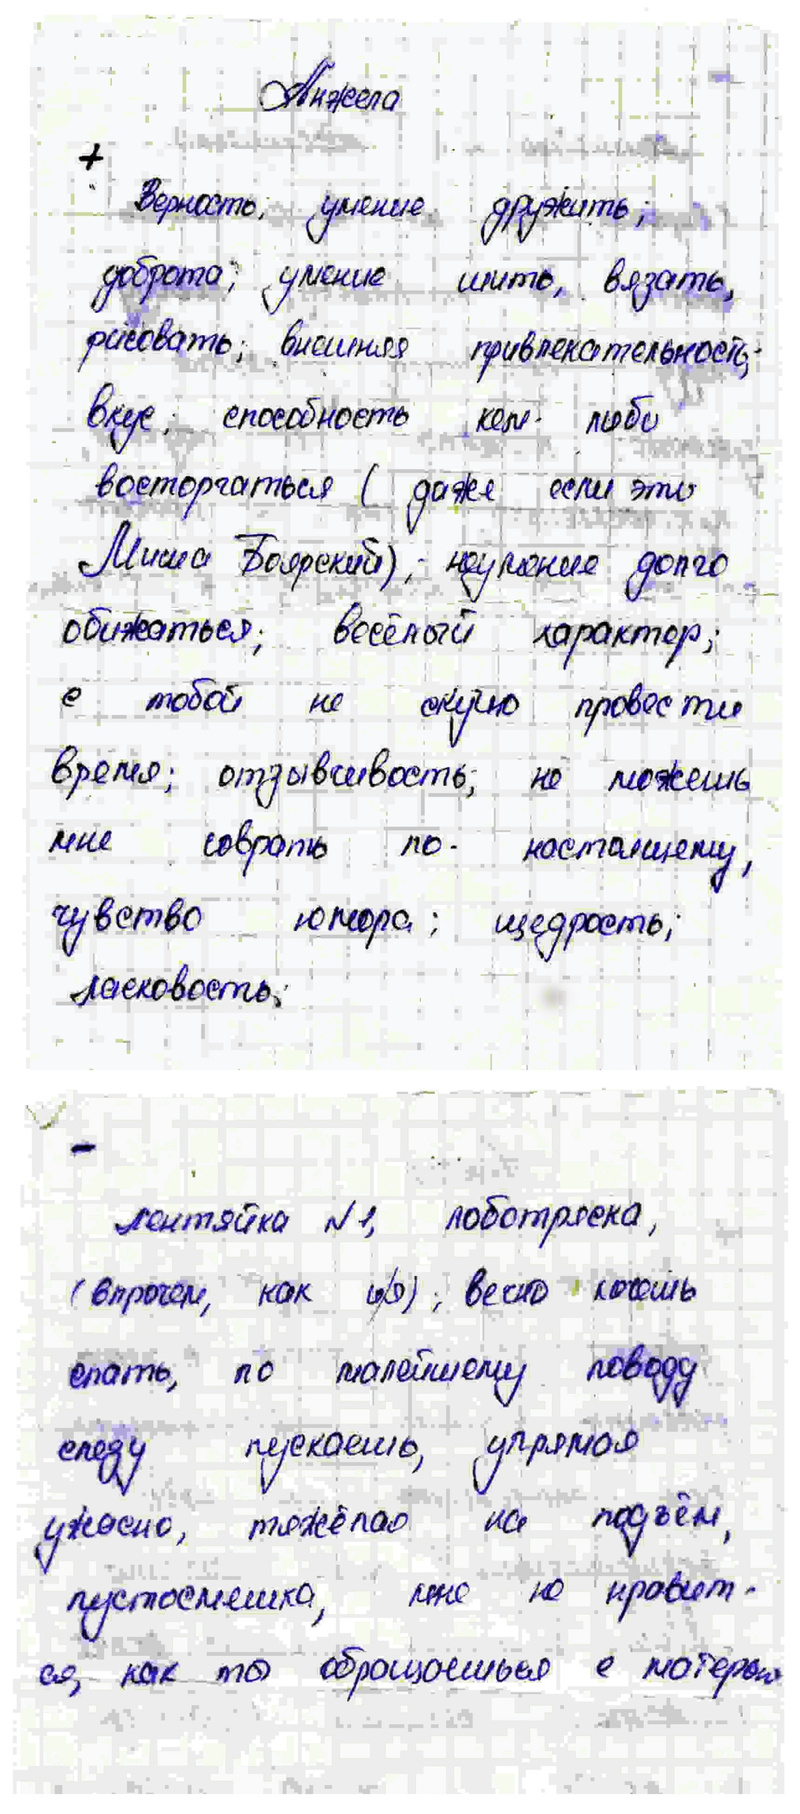 Анжела
+
Верность; умение дружить;
доброта; умение шить, вязать,
рисовать; внешняя привлекательность;
вкус; способность кем-либо
восторгаться ( даже если это
Миша Боярский); неумение долго
обижаться; весёлый характер;
с тобой не скучно провести
время; отзывчивость; не можешь
мне соврать по-настоящему,
чувство юмора; щедрость;
ласковость;
-
лентяйка №1, лоботряска,
(впрочем, как и я); вечно хочешь
спать, по малейшему поводу
слезу пускаешь, упрямая
ужасно, тяжёлая на подъём,
пустосмешка, мне не нравит-
ся, как ты обращаешься с матерью